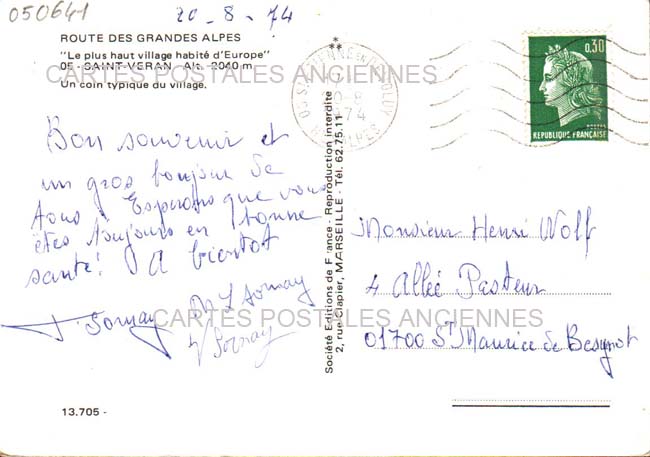 050641
20-8-74
ROUTE DES GRANDES ALPES
"Le plus haut village habité d'Europe"
05 - SAINT-VERAN - Alt. 2040 m
CARTES POSTALES ANCIENNES
Un coin typique du village.
Bon souvenir et
un gros bonjour de
tous. Esperons que vous
êtes toujours en bonne
santé! A bientot
J Sornay
Sornay
Sornay
CARTES POSTALES ANCIENNES
13.705 -
**
Société Editions de France - Reproduction interdite
2, rue Clapier, MARSEILLE - Tél. 62.75.11
05
ALPES
0,30
REPUBLIQUE FRANÇAISE
Monsieur Henri Wolf
4 Allée Pasteur
01700 St Maurice de Beynost